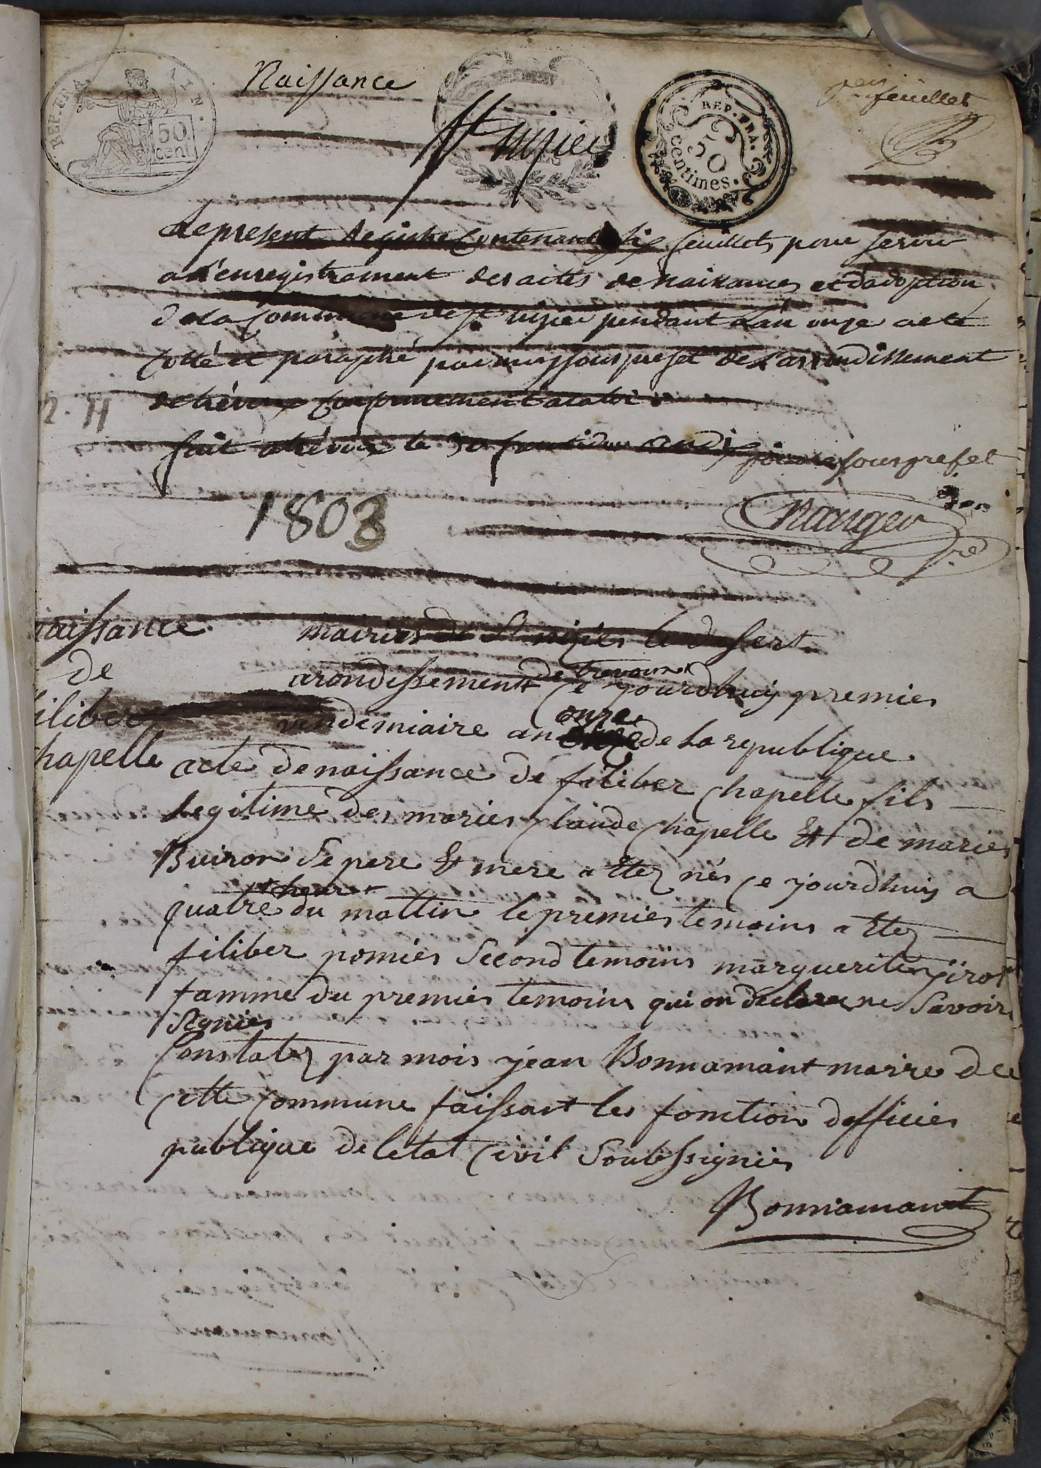 Naissance
St nizier
feuillet
REP. FRA.
50 cent
REP. FRA.
50
centimes.
Le present Registre Contenant six feuillets pour servir
a l'enregistrement des actes de naissances et d'adoption
de la Commune de St nizier pendant l'an onze a eté
Cotté et paraphé par nous souspréfet de l'arrondissement
de trévoux conformement a la loi.
fait a trévoux le 30 fructidor an dix
souspréfet
1803
naissance
de
filiber
Chapelle
mairies de St nizies le desert
arondissement de trevoux Ce yourdhuiy premies
vendemiaire an onze de La republique
acte de naissance de filiber Chapelle fils
Legitime des maries Claude Chapelle Et de maries
Buiron Se pere Et mere a Ettez nés Ce yourdhuiy a
quatre heures du mattin le premies temoins a Ettez
filiber pomiés Second temoins margueritte
famme du premies temoins qui on declarez ne Savoir
Signies
Constatez par mois yean Bonnamant marre de
cette Commune faissant les fonction dofficies
publique de letat Civil Soubssignies
Bonnamant